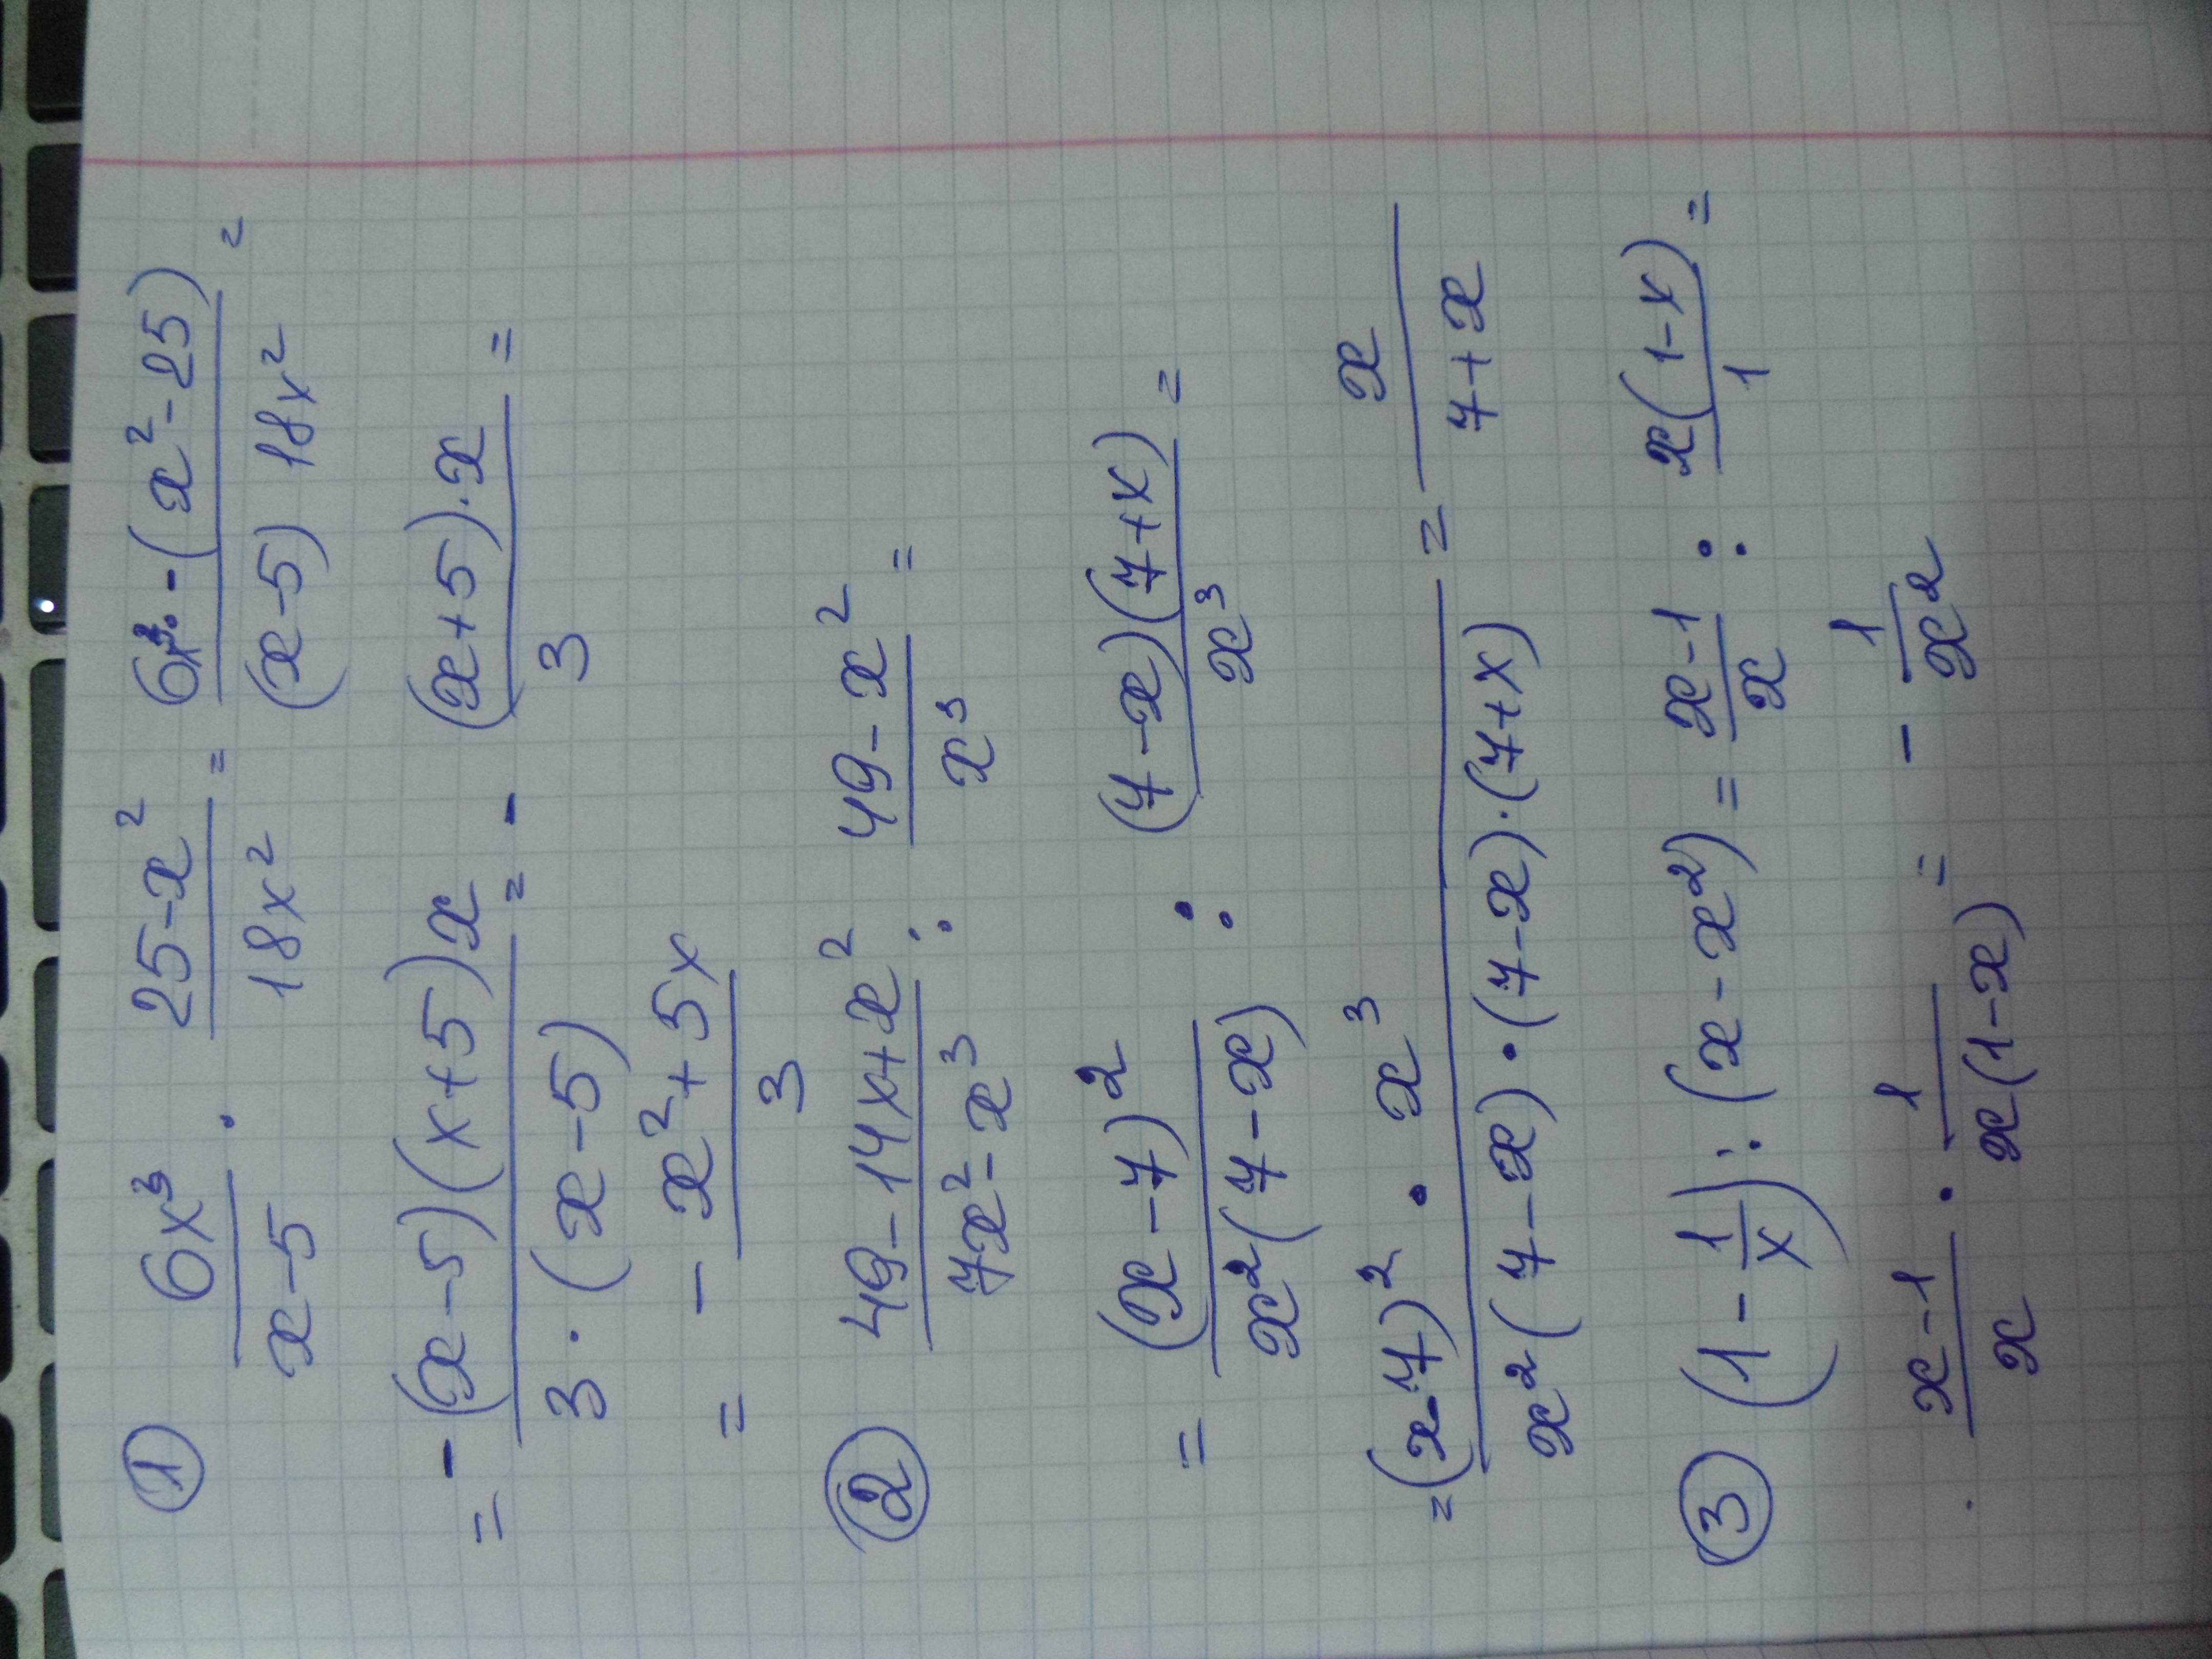 ① 6x³/(x-5) · (25-x²)/(18x²) = (6x³·-(x²-25))/((x-5) 18x²) =
= - ((x-5)(x+5)x)/(3·(x-5)) = - ((x+5)·x)/3 =
= - (x²+5x)/3
② (49-14x+x²)/(7x²-x³) : (49-x²)/x³ =
= (x-7)²/(x²(7-x)) : ((7-x)(7+x))/x³ =
= ((x-7)² · x³)/(x²(7-x)·(7-x)·(7+x)) = x/(7+x)
③ (1 - 1/x) : (x-x²) = (x-1)/x : (x(1-x))/1 =
(x-1)/x · 1/(x(1-x)) = - 1/x²